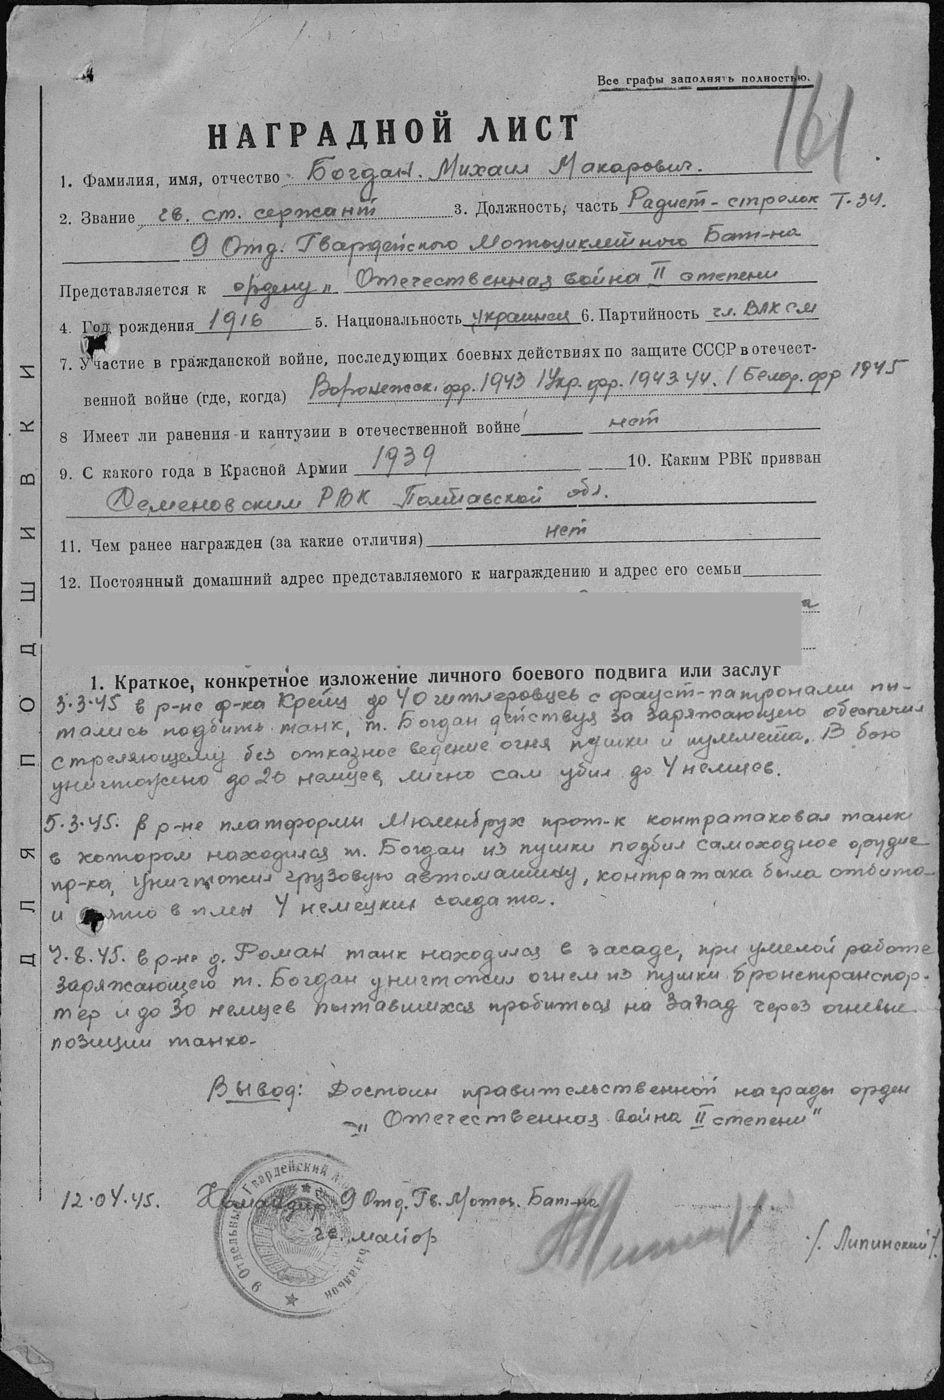 Все графы заполнять полностью.
161
НАГРАДНОЙ ЛИСТ
1. Фамилия, имя, отчество Богдан Михаил Макарович.
2. Звание гв. ст. сержант 3. Должность, часть Радист-стрелок Т-34.
9 Отд. Гвардейского Мотоциклетного Бат-на
Представляется к ордену „Отечественная война II степени
4. Год рождения 1916 5. Национальность украинец 6. Партийность чл. ВЛКСМ
7. Участие в гражданской войне, последующих боевых действиях по защите СССР в отечест-
венной войне (где, когда) Воронежск. фр. 1943 1 Укр. фр. 1943-44. 1 Белор. фр 1945
8 Имеет ли ранения и кантузии в отечественной войне нет
9. С какого года в Красной Армии 1939 10. Каким РВК призван
Семеновским РВК Полтавской обл.
11. Чем ранее награжден (за какие отличия) нет
12. Постоянный домашний адрес представляемого к награждению и адрес его семьи
1. Краткое, конкретное изложение личного боевого подвига или заслуг
3.3.45 в р-не ф-ка Крейц до 40 гитлеровцев с фауст-патронами пы-
тались подбить танк, т. Богдан действуя за заряжающего обеспечил
стреляющему без отказное ведение огня пушки и пулемета. В бою
уничтожено до 20 немцев, лично сам убил до 4 немцев.
5.3.45. в р-не платформы Мюленбрух прот-к контратаковал танк
в котором находился т. Богдан из пушки подбил самоходное орудие
пр-ка, уничтожил грузовую автомашину, контратака была отбита
и взято в плен 4 немецких солдата.
7.8.45. в р-не д. Роман танк находился в засаде, при умелой работе
заряжающего т. Богдан уничтожил огнем из пушки бронетранспор-
тер и до 30 немцев пытавшихся пробиться на запад через огневые
позиции танка.
Вывод: Достоин правительственной награды орден
„Отечественная война II степени"
12.04.45. Командир 9 Отд. Гв. Мотоц. Бат-на
гв. майор /Липинский/.
9 Отдельный Гвардейский батальон
ДЛЯ ПОДШИВКИ